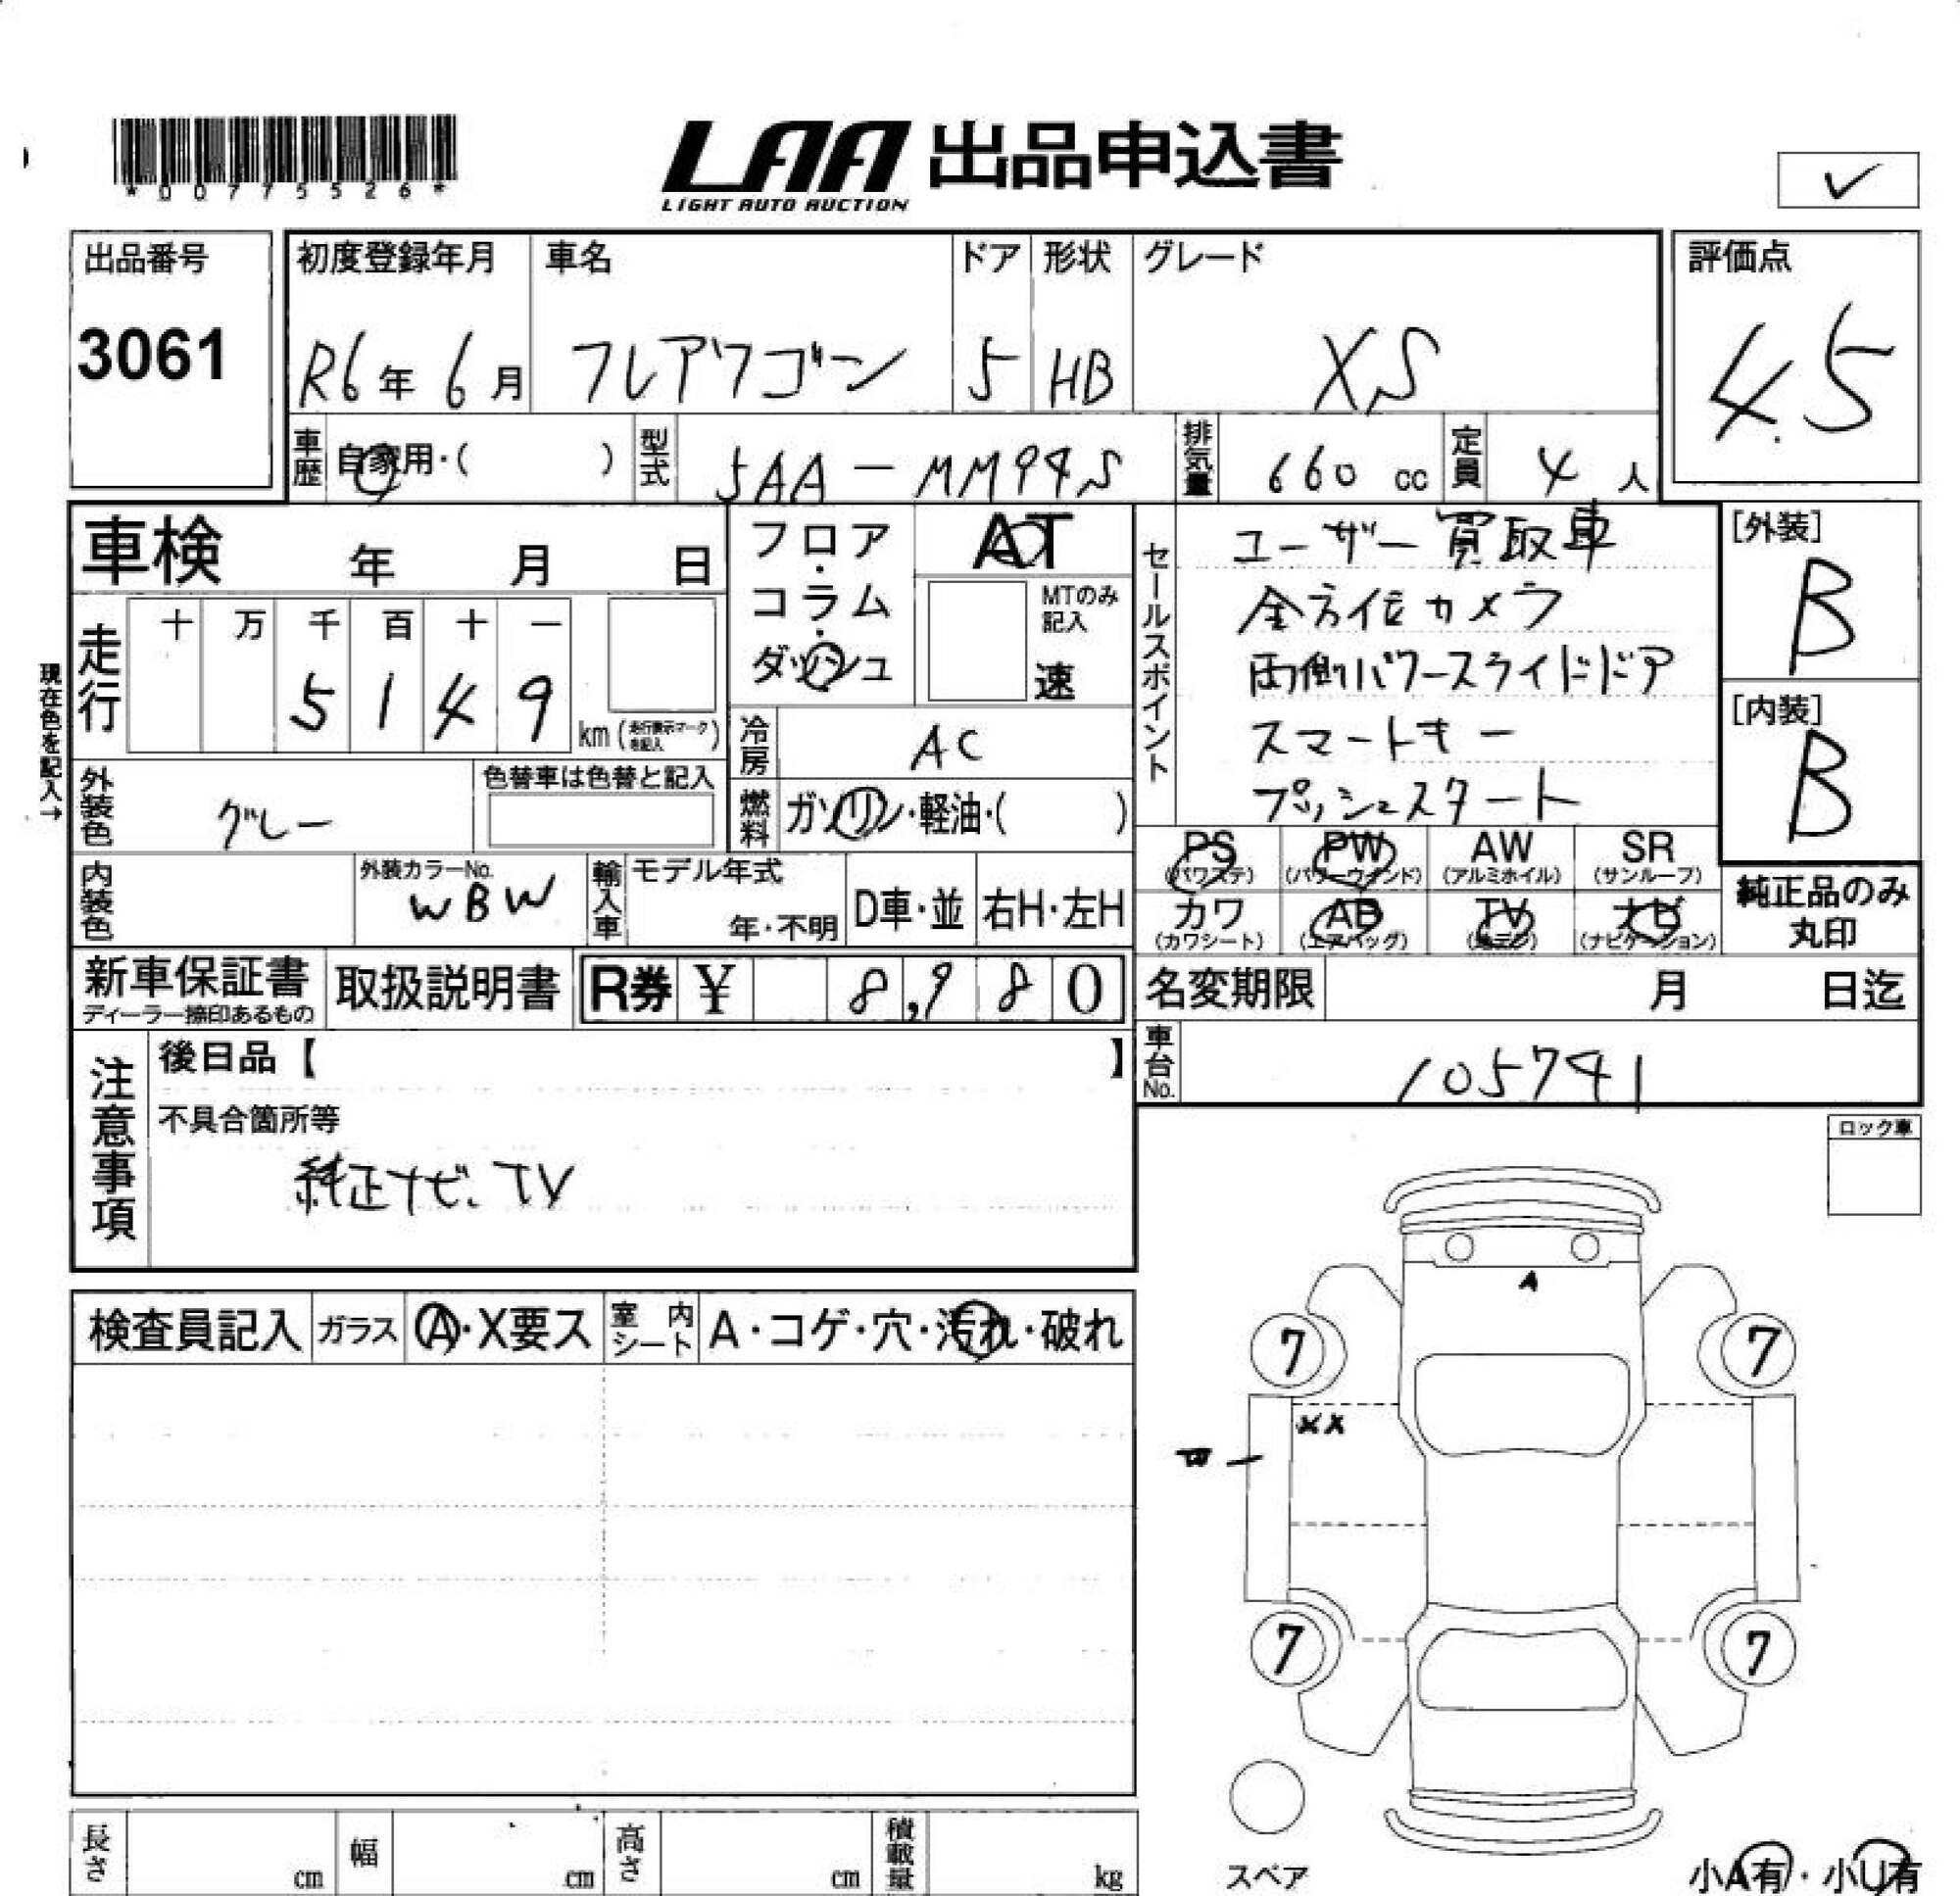 *00775526*
LAA 出品申込書
LIGHT AUTO AUCTION
✓
出品番号
3061
初度登録年月
R6年 6月
車名
フレアワゴン
ドア
5
形状
HB
グレード
XS
評価点
4.5
車歴
自家用・( )
型式
5AA-MM94S
排気量
660 cc
定員
4 人
車検 年 月 日
現在色を記入→
走行
十 万 千 百 十 一
5 1 4 9
km (走行表示マークを記入)
フロア・コラム・ダッシュ
AT
MTのみ記入
速
冷房
AC
燃料
ガソリン・軽油・( )
外装色
グレー
色替車は色替と記入
内装色
外装カラーNo.
WBW
輸入車
モデル年式
年・不明
D車・並
右H・左H
セールスポイント
ユーザー買取車
全方位カメラ
両側パワースライドドア
スマートキー
プッシュスタート
[外装]
B
[内装]
B
PS (パワステ)
PW (パワーウインド)
AW (アルミホイル)
SR (サンルーフ)
カワ (カワシート)
AB (エアバッグ)
TV (地デジ)
ナビ (ナビゲーション)
純正品のみ
丸印
新車保証書
ディーラー捺印あるもの
取扱説明書
R券 ¥ 8,980
名変期限 月 日迄
車台No.
105741
注意事項
後日品【 】
不具合箇所等
純正ナビ、TV
ロック車
検査員記入
ガラス
A・X要ス
室内シート
A・コゲ・穴・汚れ・破れ
A
7
7
XX
7
7
スペア
小A有・小U有
長さ cm
幅 cm
高さ cm
積載量 kg